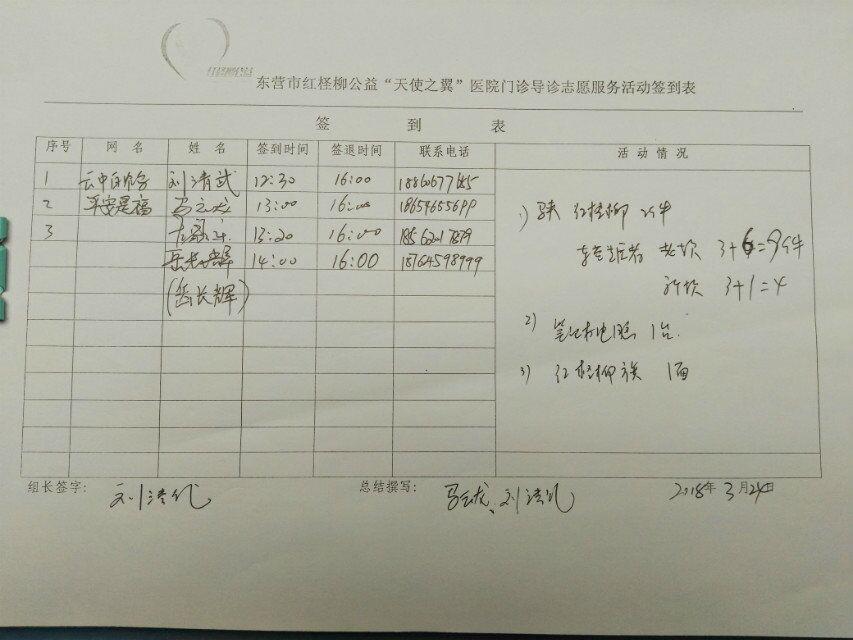 东营市红柽柳公益“天使之翼”医院门诊导诊志愿服务活动签到表
签 到 表
序号 网 名 姓 名 签到时间 签退时间 联系电话 活 动 情 况
1 刘清武 12:30 16:00 18860677685
2 平安是福 马云龙 13:00 16:00 18654655699
3 13:20 16:00
岳长辉 14:00 16:00 18764598999
(岳长辉)
1) 红柽柳 2件
3+6=9件
3+1=4
2) 笔记本电脑 1台.
3) 红柽柳旗 1面
组长签字: 刘清武 总结撰写: 马云龙、刘清武 2018年 3月24日